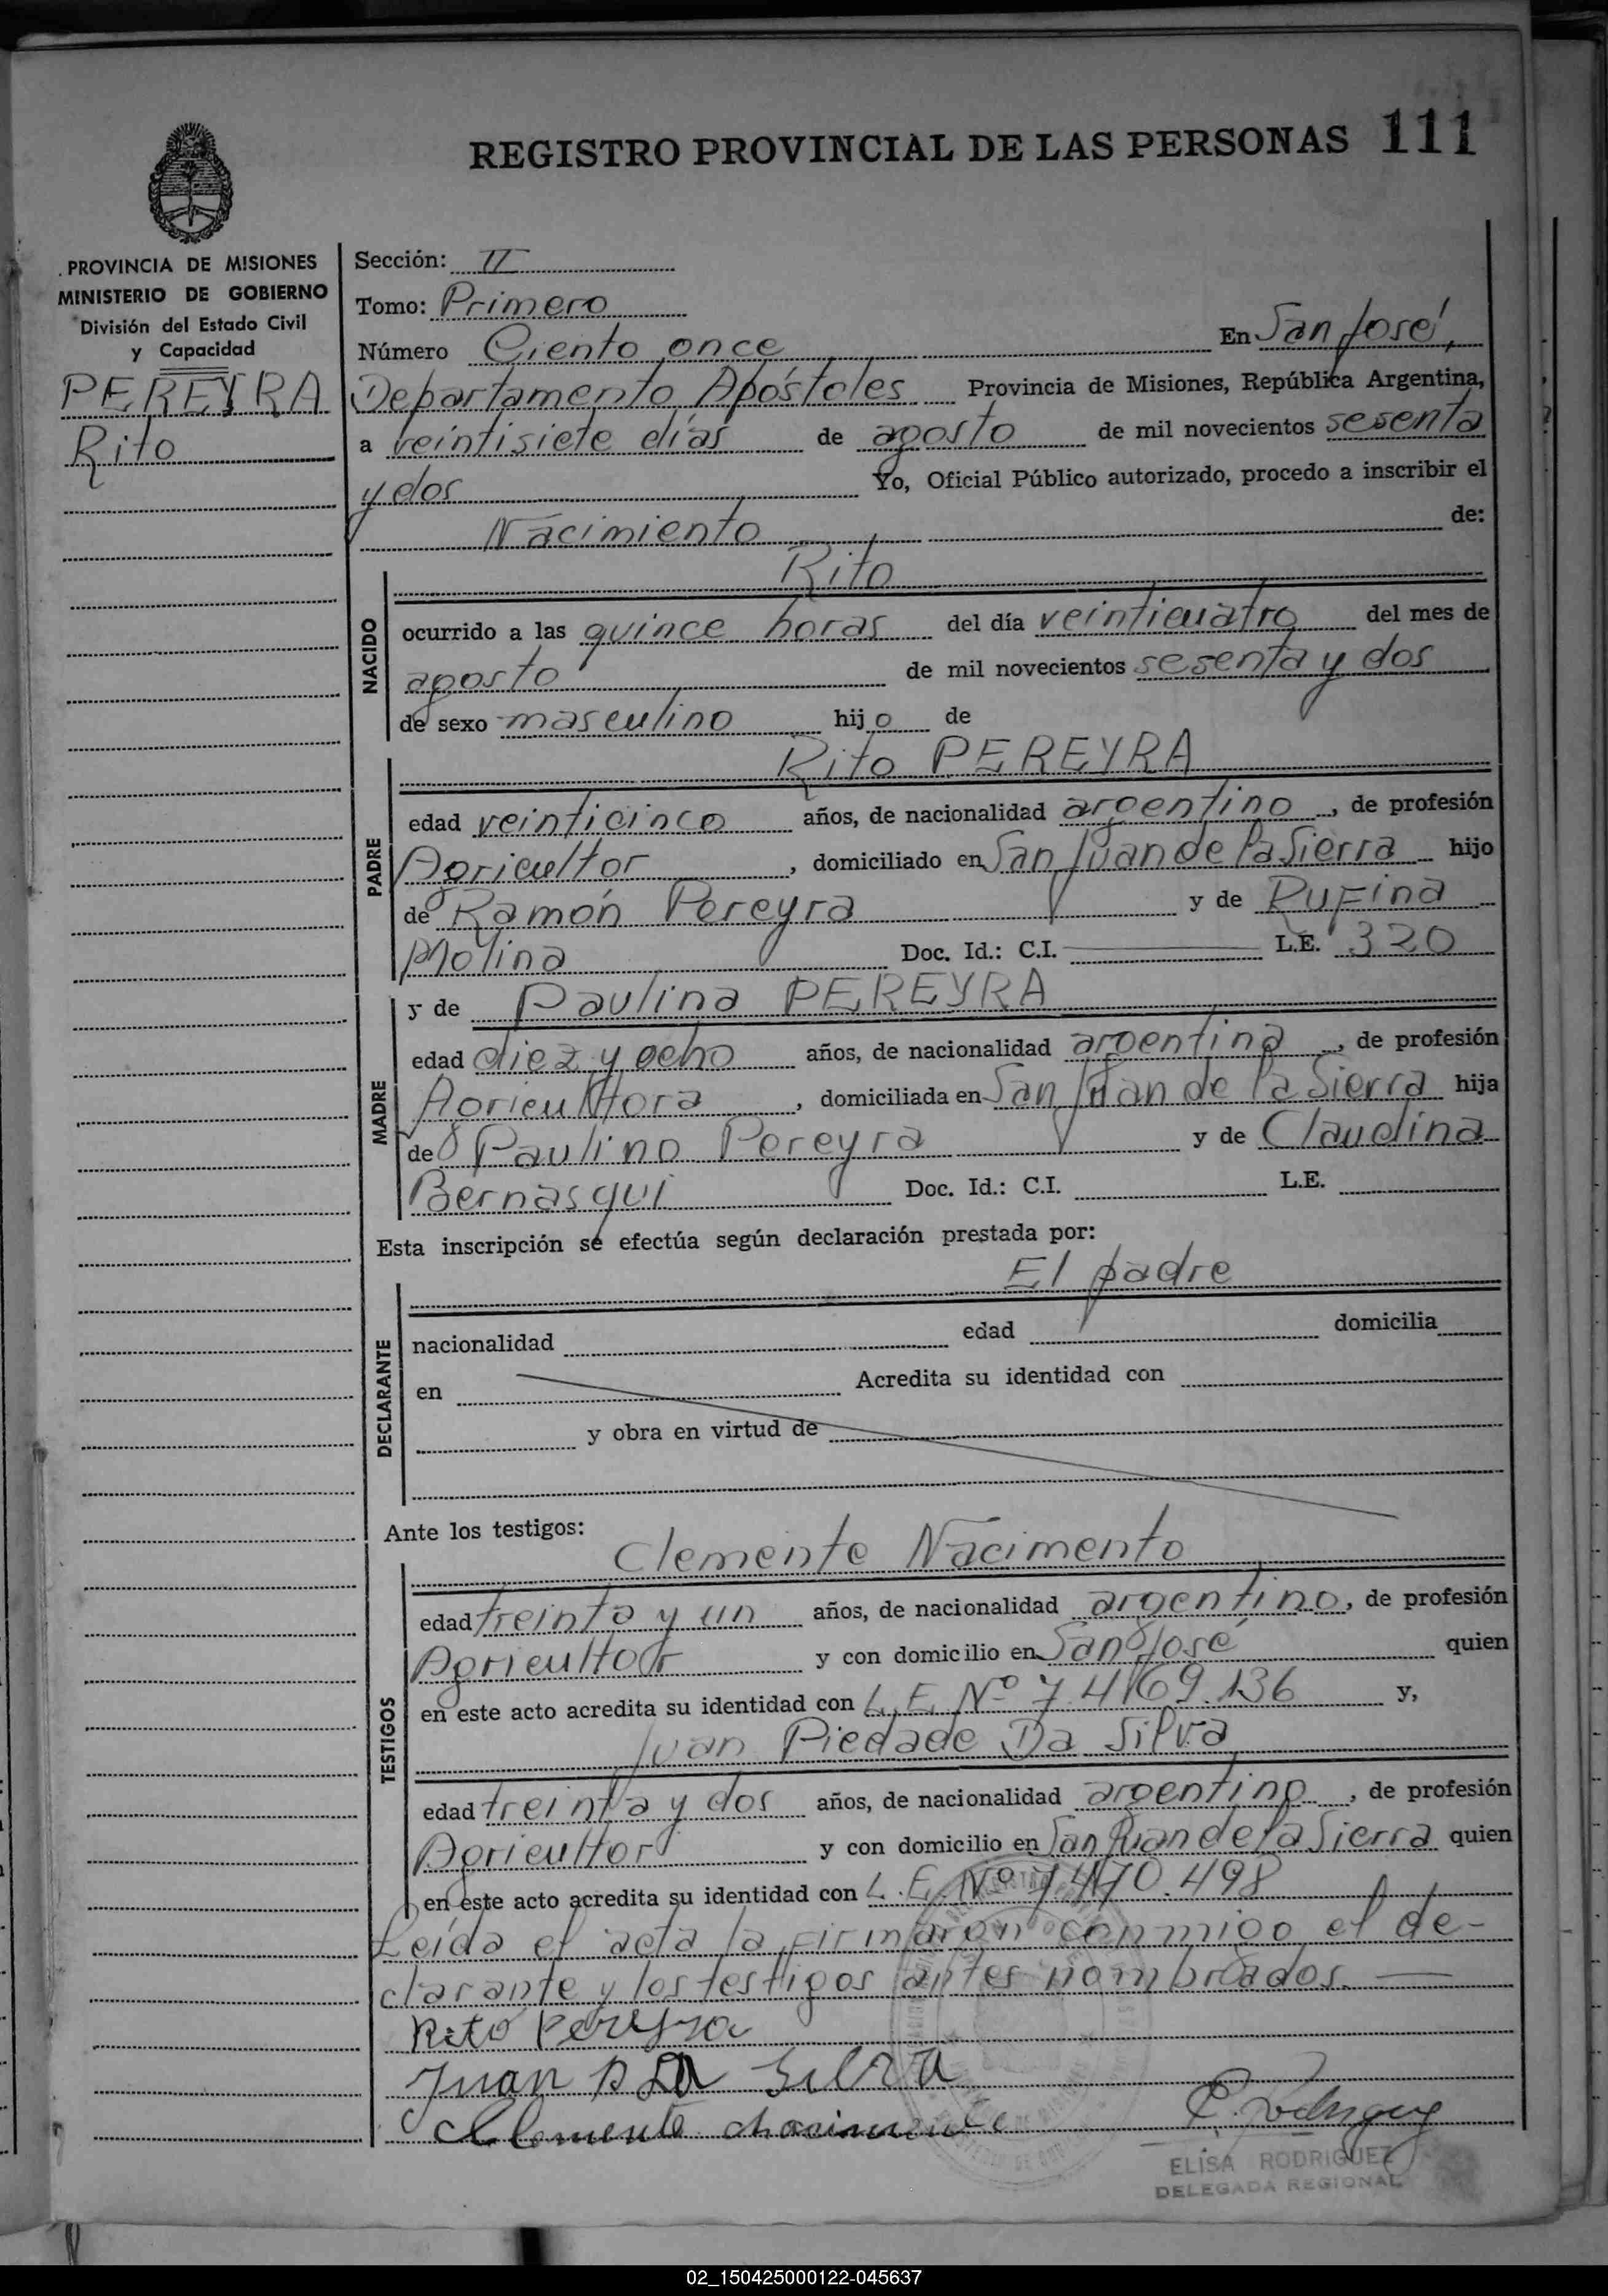 REGISTRO PROVINCIAL DE LAS PERSONAS 111
PROVINCIA DE MISIONES
MINISTERIO DE GOBIERNO
División del Estado Civil
y Capacidad
PEREYRA
Rito
Sección: II
Tomo: Primero
Número Ciento once En San José,
Departamento Apóstoles Provincia de Misiones, República Argentina,
a veintisiete días de agosto de mil novecientos sesenta
y dos Yo, Oficial Público autorizado, procedo a inscribir el
Nacimiento de:
Rito
NACIDO
ocurrido a las quince horas del día veinticuatro del mes de
agosto de mil novecientos sesenta y dos
de sexo masculino hijo de
Rito PEREYRA
PADRE
edad veinticinco años, de nacionalidad argentino, de profesión
Agricultor, domiciliado en San Juan de la Sierra hijo
de Ramón Pereyra y de Rufina
Molina Doc. Id.: C.I. L.E. 320
y de Paulina PEREYRA
MADRE
edad diez y ocho años, de nacionalidad argentina, de profesión
Agricultora, domiciliada en San Juan de la Sierra hija
de Paulino Pereyra y de Claudina
Bernasqui Doc. Id.: C.I. L.E.
Esta inscripción se efectúa según declaración prestada por:
El padre
DECLARANTE
nacionalidad edad domicilia
en Acredita su identidad con
y obra en virtud de
Ante los testigos:
Clemente Nacimento
TESTIGOS
edad treinta y un años, de nacionalidad argentino, de profesión
Agricultor y con domicilio en San José quien
en este acto acredita su identidad con L.E. Nº 7.469.136 y,
Juan Piedade Da Silva
edad treinta y dos años, de nacionalidad argentino, de profesión
Agricultor y con domicilio en San Juan de la Sierra quien
en este acto acredita su identidad con L.E. Nº 7.470.498
Leída el acta la firmaron conmigo el de-
clarante y los testigos antes nombrados.
Rito Pereyra
Juan P Da Silva
Clemente
E. Rodriguez
ELISA RODRIGUEZ
DELEGADA REGIONAL
02_150425000122-045637